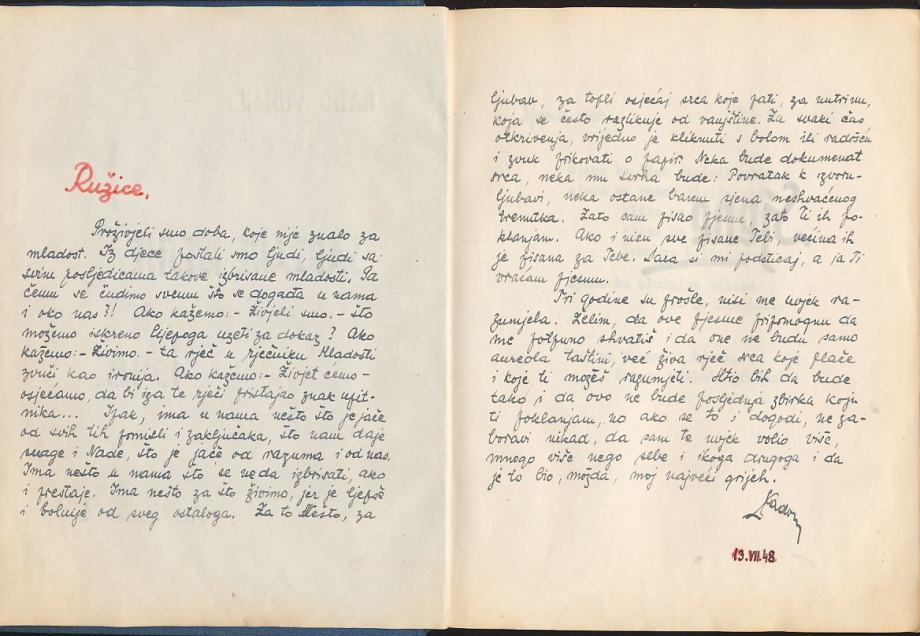 Ružice.
Proživjeli smo doba, koje nije znalo za
mladost. Iz djece postali smo ljudi, ljudi sa
svim posljedicama takove izbrisane mladosti. Pa
čemu se čudimo svemu što se događa u nama
i oko nas?! Ako kažemo:- Živjeli smo. - što
možemo iskreno lijepoga uzeti za dokaz? Ako
kažemo: - Živimo. - ta rječ u rječniku Mladosti
zvuči kao ironija. Ako kažemo: - Živjet ćemo -
osjećamo, da bi iza te rječi pristajao znak upit-
nika... Ipak, ima u nama nešto što je jače
od svih tih pomisli i zaključaka, što nam daje
snage i Nade, što je jače od razuma i od nas.
Ima nešto u nama što se neda izbrisati, ako
i prestaje. Ima nešto za što živimo, jer je ljepše
i bolnije od sveg ostaloga. Za to Nešto, za
ljubav, za topli osjećaj srca koje pati, za nutrinu,
koja se često razlikuje od vanjštine. Za svaki čas
otkrivenja, vrijedno je kliknuti s bolom ili radošću
i zvuk prikovati o papir. Neka bude dokumenat
srca, neka mu svrha bude: Povratak k izvoru-
ljubavi, neka ostane barem sjena neshvaćenog
trenutka. Zato sam pisao pjesme, zato ti ih po-
klanjam. Ako i nisu sve pisane Tebi, većina ih
je pisana za Tebe. Dala si mi podsticaj, a ja Ti
vraćam pjesmu.
Tri godine su prošle, nisi me uvjek ra-
zumjela. Želim, da ove pjesme pripomognu da
me potpuno shvatiš i da one ne budu samo
aureola taštini, već živa rječ srca koje plače
i koje ti možeš razumjeti. Htio bih da bude
tako i da ovo ne bude posljednja zbirka koju
ti poklanjam, no ako se to i dogodi, ne za-
boravi nikad, da sam te uvjek volio više,
mnogo više nego sebe i ikoga drugoga i da
je to bio, možda, moj najveći grijeh.
13.VII.48.